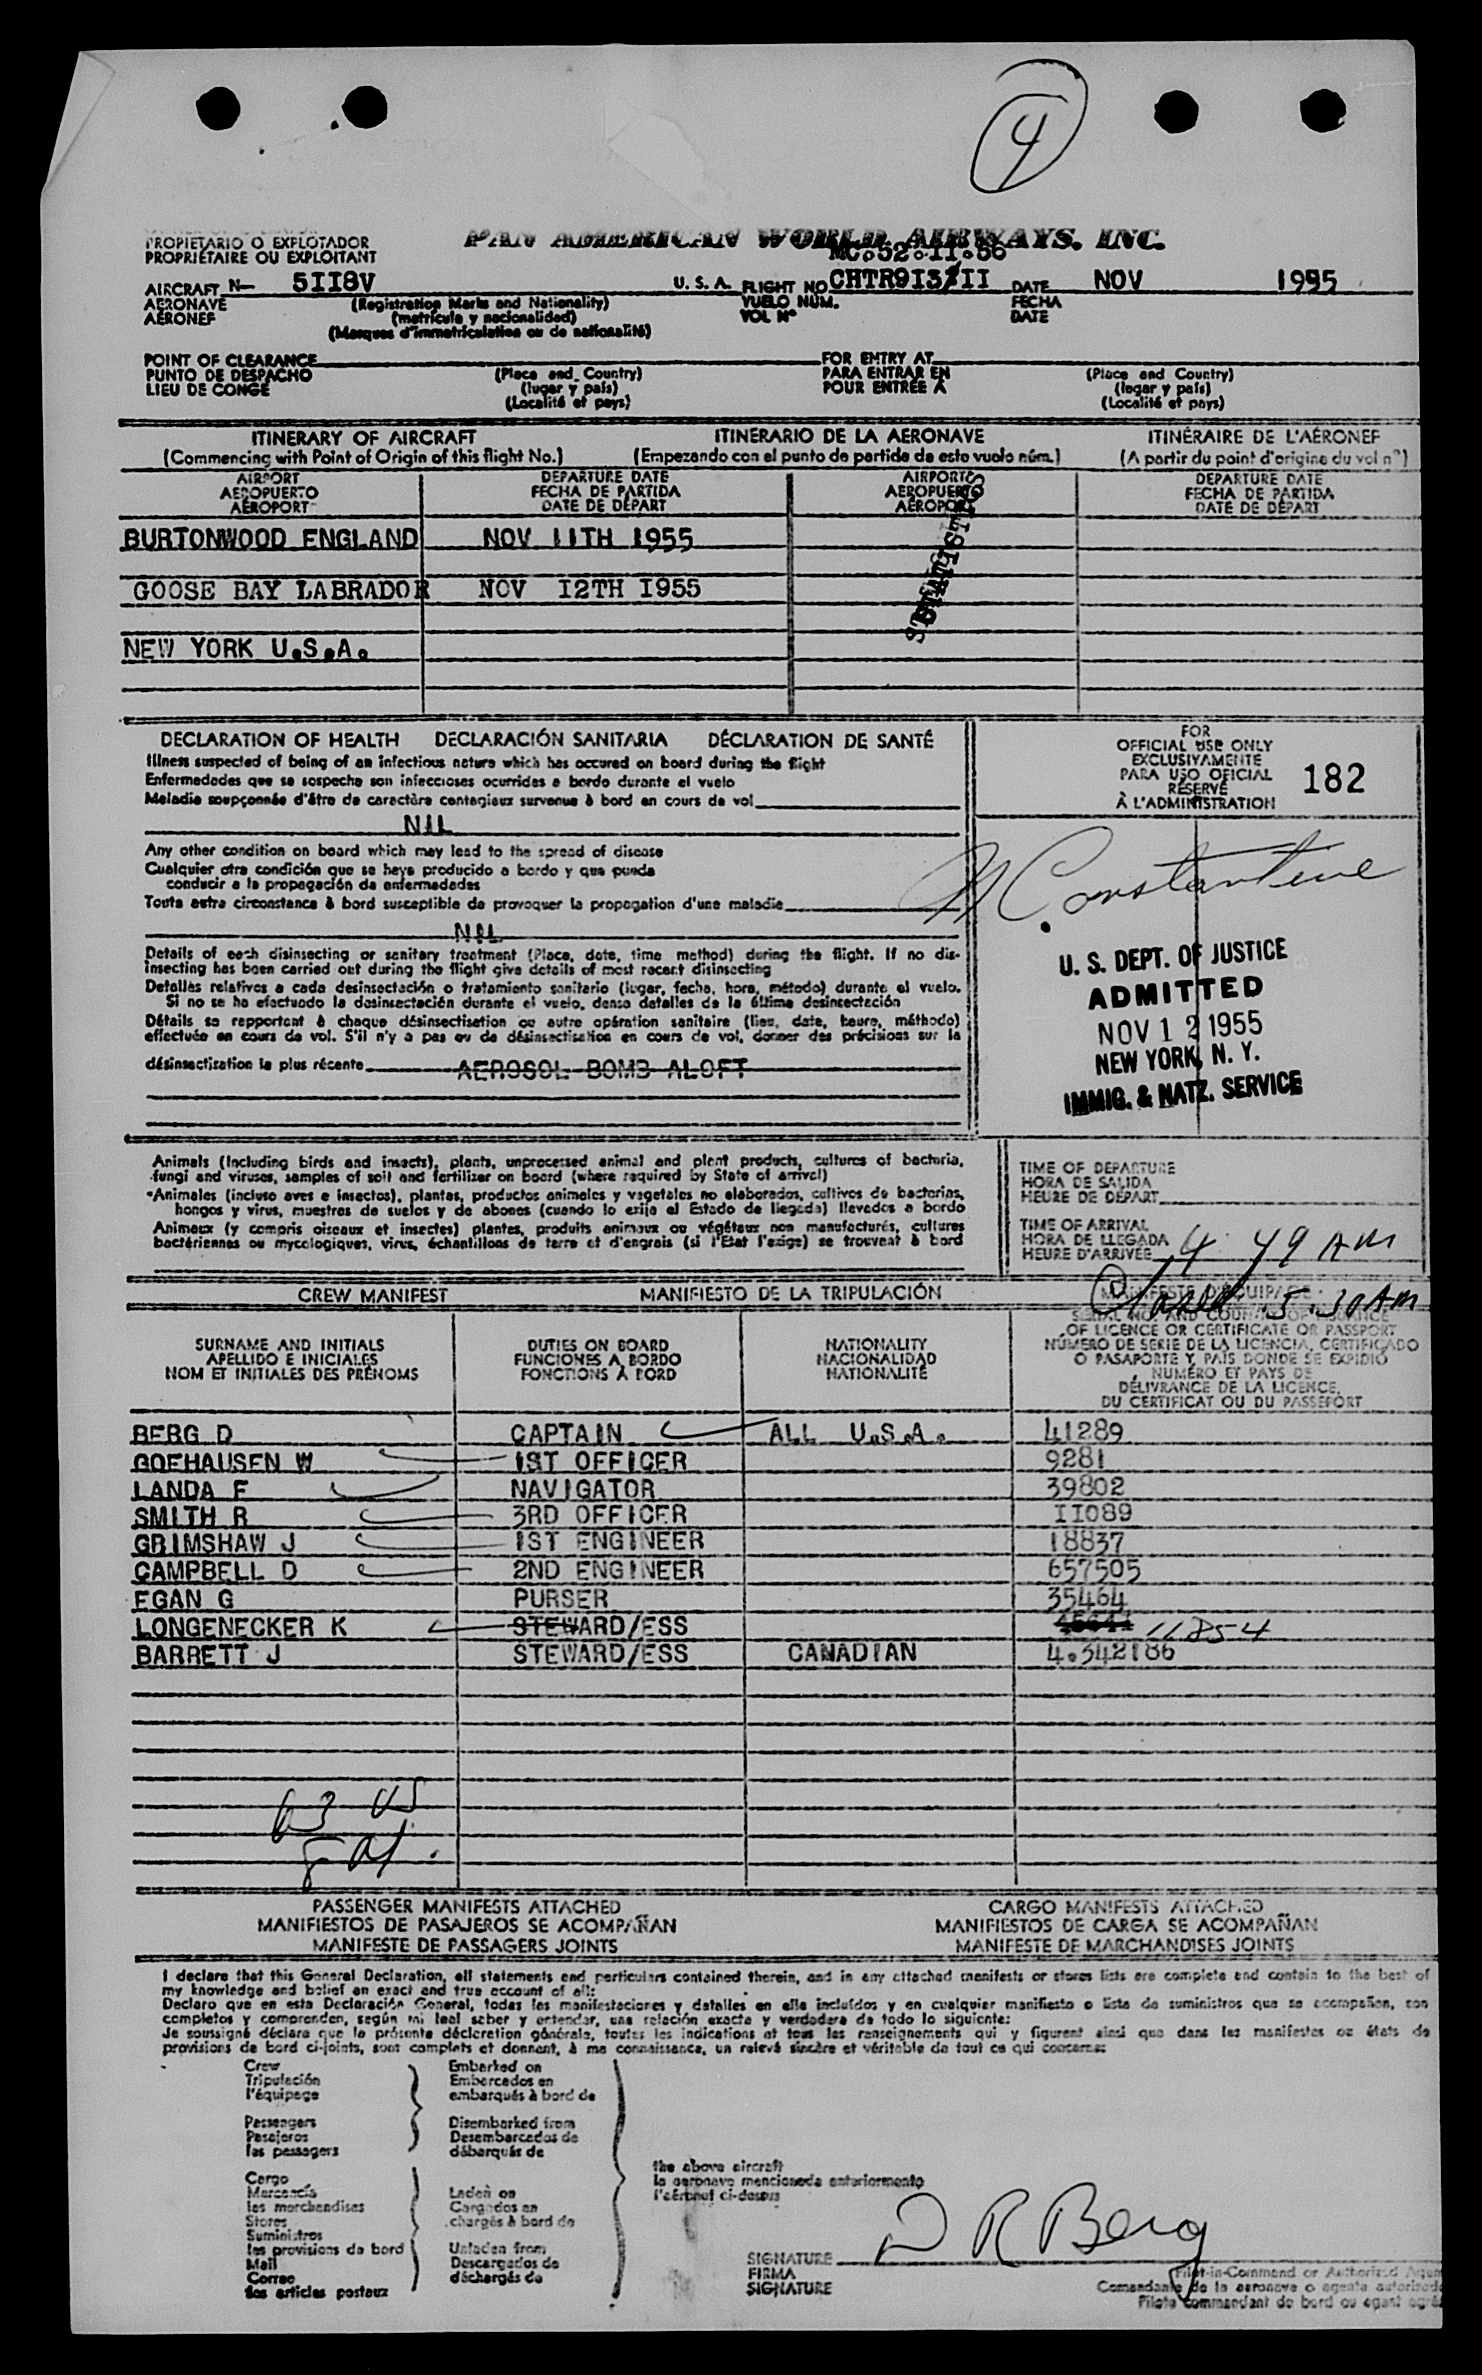 4
PAN AMERICAN WORLD AIRWAYS, INC.
PROPIETARIO O EXPLOTADOR
PROPRIÉTAIRE OU EXPLOITANT
MC.52.II.56
AIRCRAFT N- 5II8V U.S.A. FLIGHT NO CHTR9I3/II DATE NOV 1955
AERONAVE (Registration Marks and Nationality) VUELO NUM. FECHA
AÉRONEF (matrícula y nacionalidad) VOL Nº DATE
(Marques d'immatriculation ou de nationalité)
POINT OF CLEARANCE FOR ENTRY AT
PUNTO DE DESPACHO (Place and Country) PARA ENTRAR EN (Place and Country)
LIEU DE CONGÉ (lugar y país) POUR ENTRÉE À (lugar y país)
(Localité et pays) (Localité et pays)
ITINERARY OF AIRCRAFT ITINERARIO DE LA AERONAVE ITINÉRAIRE DE L'AÉRONEF
(Commencing with Point of Origin of this flight No.) (Empezando con el punto de partida de esto vuelo núm.) (A partir du point d'origine du vol nº)
AIRPORT DEPARTURE DATE AIRPORT DEPARTURE DATE
AEROPUERTO FECHA DE PARTIDA AEROPUERTO FECHA DE PARTIDA
AÉROPORT DATE DE DÉPART AÉROPORT DATE DE DÉPART
BURTONWOOD ENGLAND NOV 11TH 1955
GOOSE BAY LABRADOR NOV I2TH I955
NEW YORK U.S.A.
DECLARATION OF HEALTH DECLARACIÓN SANITARIA DÉCLARATION DE SANTÉ
Illness suspected of being of an infectious nature which has occured on board during the flight
Enfermedades que se sospecha son infecciosas ocurridas a bordo durante el vuelo
Maladie soupçonnée d'être de caractère contagieux survenue à bord en cours de vol
NIL
Any other condition on board which may lead to the spread of disease
Cualquier otra condición que se haya producido a bordo y que pueda
conducir a la propagación de enfermedades
Toute autre circonstance à bord susceptible de provoquer la propagation d'une maladie
NIL
Details of each disinsecting or sanitary treatment (Place, date, time method) during the flight. If no dis-
insecting has been carried out during the flight give details of most recent disinsecting
Detalles relativos a cada desinsectación o tratamiento sanitario (lugar, fecha, hora, método) durante el vuelo.
Si no se ha efectuado la desinsectación durante el vuelo, dense detalles de la última desinsectación
Détails se rapportant à chaque désinsectisation ou autre opération sanitaire (lieu, date, heure, méthode)
effectuée en cours de vol. S'il n'y a pas eu de désinsectisation en cours de vol, donner des précisions sur la
désinsectisation la plus récente AEROSOL BOMB ALOFT
FOR
OFFICIAL USE ONLY
EXCLUSIVAMENTE
PARA USO OFICIAL 182
RÉSERVÉ
À L'ADMINISTRATION
Constantine
U. S. DEPT. OF JUSTICE
ADMITTED
NOV 12 1955
NEW YORK, N. Y.
IMMIG. & NATZ. SERVICE
Animals (Including birds and insects), plants, unprocessed animal and plant products, cultures of bacteria,
fungi and viruses, samples of soil and fertilizer on board (where required by State of arrival)
Animales (incluso aves e insectos), plantas, productos animales y vegetales no elaborados, cultivos de bacterias,
hongos y virus, muestras de suelos y de abonos (cuando lo exija el Estado de llegada) llevados a bordo
Animaux (y compris oiseaux et insectes) plantes, produits animaux ou végétaux non manufacturés, cultures
bactériennes ou mycologiques, virus, échantillons de terre et d'engrais (si l'Etat l'exige) se trouvant à bord
TIME OF DEPARTURE
HORA DE SALIDA
HEURE DE DÉPART
TIME OF ARRIVAL
HORA DE LLEGADA
HEURE D'ARRIVÉE 4 49 AM
CREW MANIFEST MANIFIESTO DE LA TRIPULACIÓN
5.30 AM
SURNAME AND INITIALS DUTIES ON BOARD NATIONALITY OF LICENCE OR CERTIFICATE OR PASSPORT
APELLIDO E INICIALES FUNCIONES A BORDO NACIONALIDAD NÚMERO DE SERIE DE LA LICENCIA, CERTIFICADO
NOM ET INITIALES DES PRÉNOMS FONCTIONS À BORD NATIONALITÉ O PASAPORTE Y PAÍS DONDE SE EXPIDIÓ
NUMÉRO ET PAYS DE
DÉLIVRANCE DE LA LICENCE,
DU CERTIFICAT OU DU PASSEPORT
BERG D CAPTAIN ALL U.S.A. 41289
GOEHAUSEN W 1ST OFFICER 9281
LANDA F NAVIGATOR 39802
SMITH R 3RD OFFICER II089
GRIMSHAW J 1ST ENGINEER 18837
CAMPBELL D 2ND ENGINEER 657505
EGAN G PURSER 35464
LONGENECKER K STEWARD/ESS 11854
BARRETT J STEWARD/ESS CANADIAN 4.342186
63 US
PASSENGER MANIFESTS ATTACHED CARGO MANIFESTS ATTACHED
MANIFIESTOS DE PASAJEROS SE ACOMPAÑAN MANIFIESTOS DE CARGA SE ACOMPAÑAN
MANIFESTE DE PASSAGERS JOINTS MANIFESTE DE MARCHANDISES JOINTS
I declare that this General Declaration, all statements and particulars contained therein, and in any attached manifests or stores lists are complete and contain to the best of
my knowledge and belief an exact and true account of all:
Declaro que en esta Declaración General, todas las manifestaciones y detalles en ella incluídos y en cualquier manifiesto o lista de suministros que se acompañen, son
completos y comprenden, según mi leal saber y entender, una relación exacta y verdadera de todo lo siguiente:
Je soussigné déclare que la présente déclaration générale, toutes les indications et tous les renseignements qui y figurent ainsi que dans les manifestes ou états de
provisions de bord ci-joints, sont complets et donnent, à ma connaissance, un relevé sincère et véritable de tout ce qui concerne:
Crew Embarked on
Tripulación Embarcados en
l'équipage embarqués à bord de
Passengers Disembarked from
Pasajeros Desembarcados de
les passagers débarqués de
the above aircraft
la aeronave mencionada anteriormente
l'aéronef ci-dessus
Cargo
Mercancía Laden on
les marchandises Cargados en
Stores chargés à bord de
Suministros
les provisions de bord Unladen from
Mail Descargados de
Correo déchargés de
les articles postaux
SIGNATURE D R Berg
FIRMA Pilot-in-Command or Authorized Agent
SIGNATURE Comandante de la aeronave o agente autorizado
Pilote commandant de bord ou agent agréé